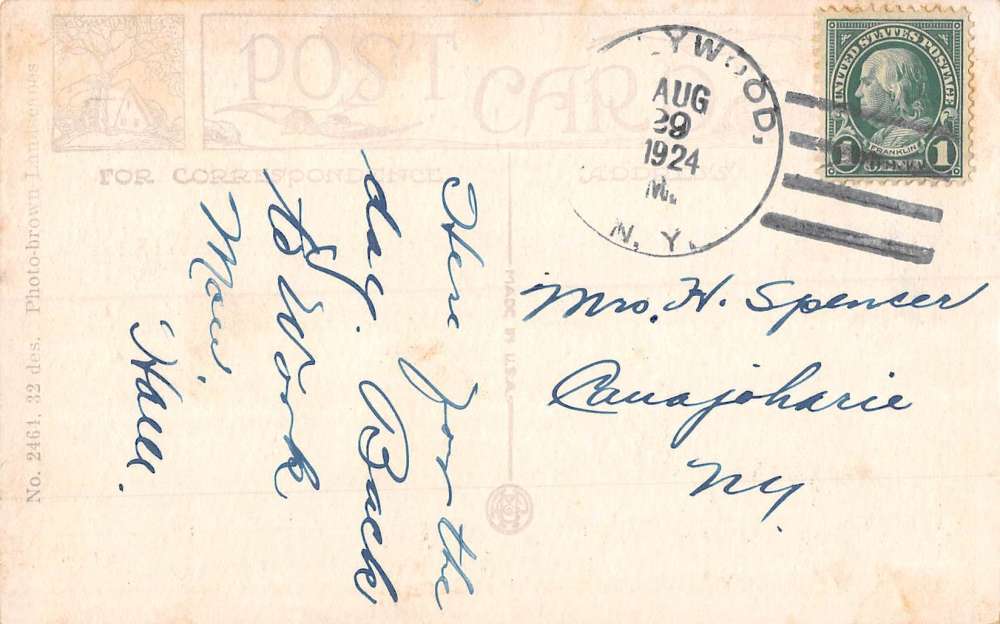 POST CARD
FOR CORRESPONDENCE
ADDRESS
No. 2461, 32 des. Photo-brown Landscapes
MADE IN U.S.A.
YWOOD,
AUG
29
1924
M.
N. Y.
UNITED STATES POSTAGE
FRANKLIN
1 CENT 1
Here for the
day. Back
to Work
Mon.
Mrs. H. Spencer
Canajoharie
NY.